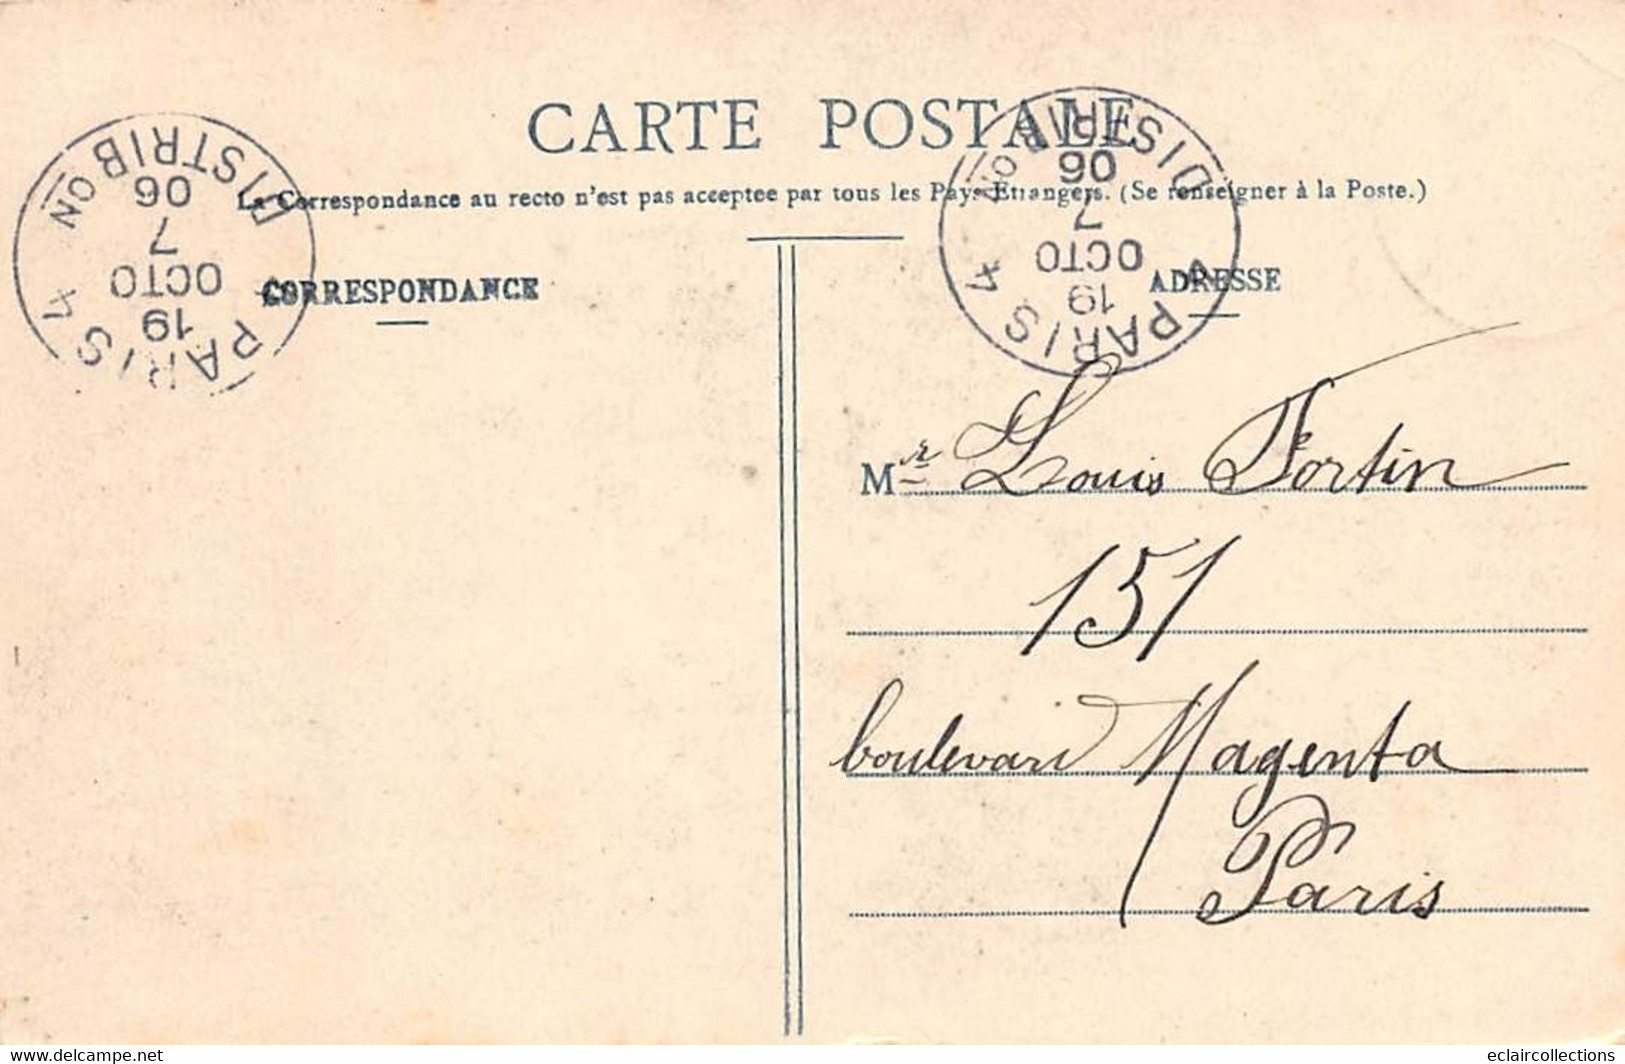 CARTE POSTALE
La Correspondance au recto n'est pas acceptee par tous les Pays Etrangers. (Se renseigner à la Poste.)
CORRESPONDANCE
ADRESSE
PARIS 4
19
OCTO
7
06
DISTRIBON
PARIS 4
19
OCTO
7
06
DISTRIBON
Mr Louis Fortin
151
boulevard Magenta
Paris
www.delcampe.net
eclaircollections